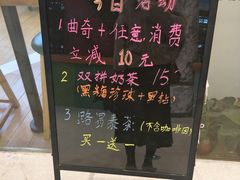 今日活动
1 曲奇+任意消费
立减 10元
2 双拼奶茶 15
(黑糖珍珠+黑钻)
3 路易泰茶(不含咖啡因)
买一送一